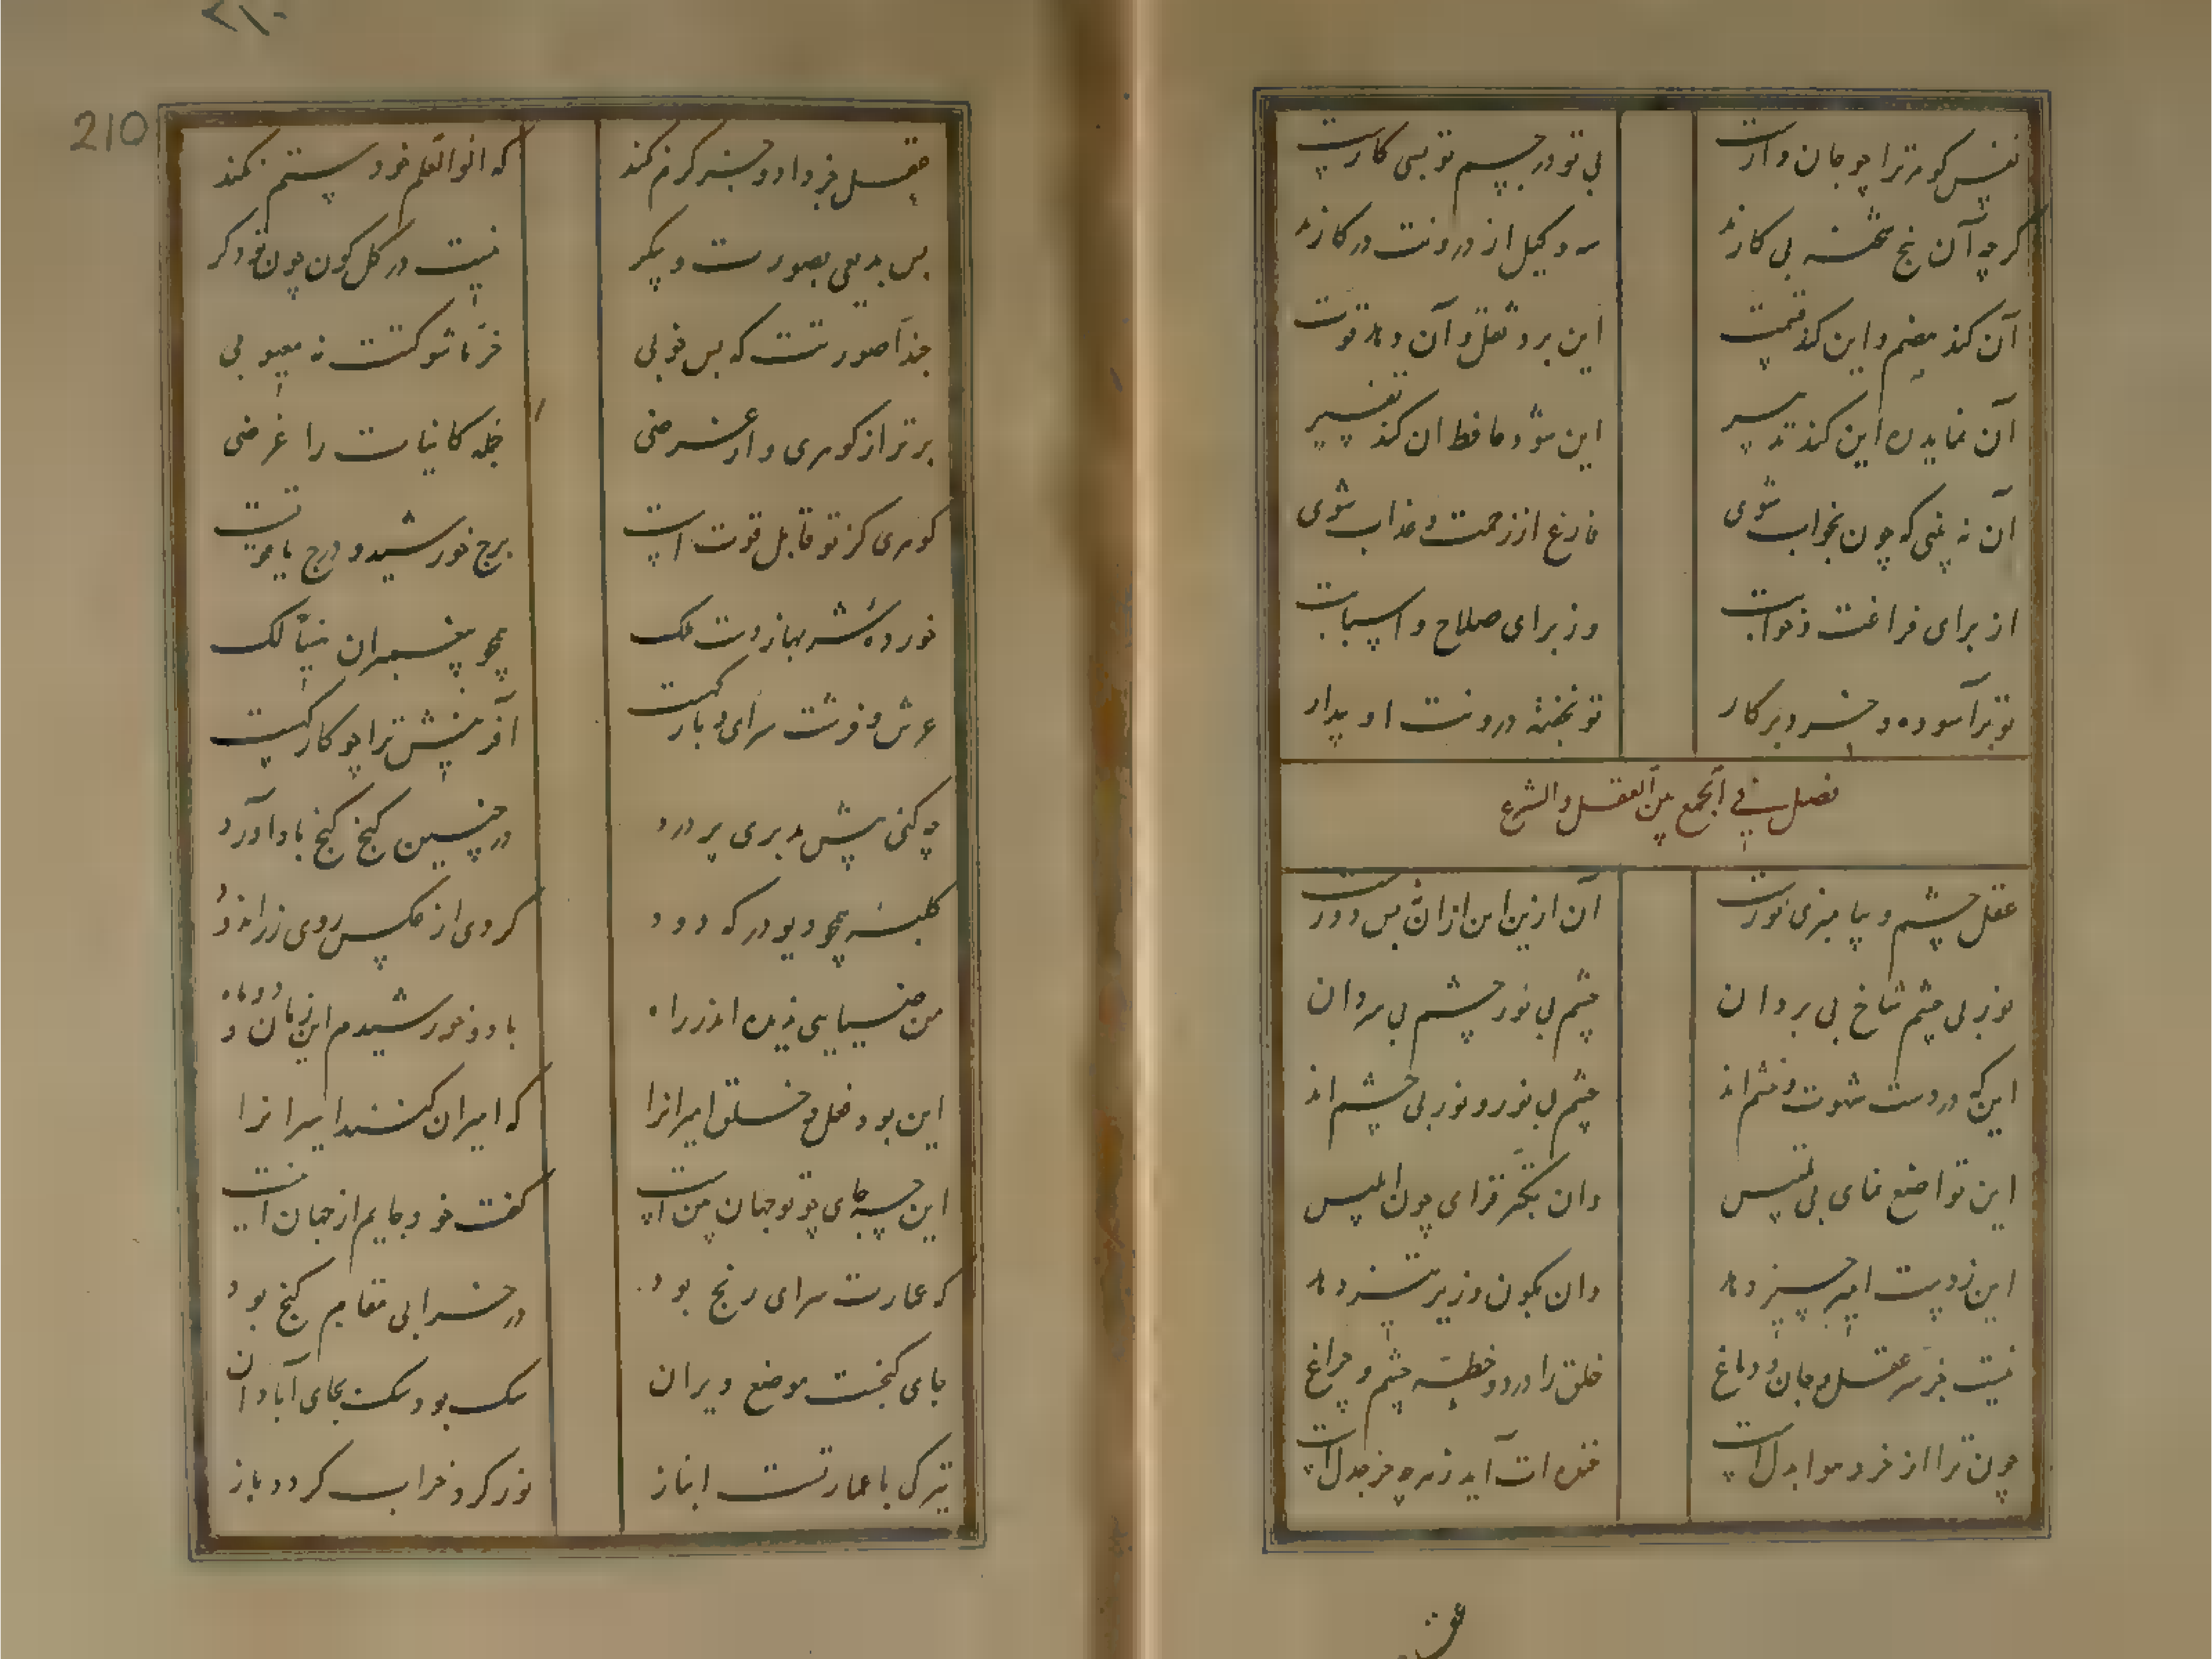 نفس کو مر ترا چو جان دارست
بی تو در جسم تو بسی کارست
گرچه آن پنج شحنه بی کارند
سه وکیل از درونت در کارند
آن کند هضم و این کند قسمت
این برد ثقل و آن دهد قوت
آن نماید ره این کند تدبیر
این شود حافظ ان کند تفسیر
آن نه بینی که چون بخواب شوی
فارغ از زحمت و عذاب شوی
از برای فراغت و خوابت
وز برای صلاح و اسبابت
تو تن آسوده و خرد بر کار
تو بخفته درونت او بیدار
فصل فی الجمع بین العقل و الشرع
عقل چشم و پیامبری نورست
آن ازین این ازان بس دورست
نور بی چشم شاخ بی بر دان
چشم بی نور چشم بی سر دان
اینکه در دست شهوت و خشم اند
چشم بی نور و نور بی چشم اند
این تواضع نمای بی تلبیس
وان تکبر فزای چون ابلیس
نیست جز شرع و عقل و جان و دماغ
خلق را در دو خطه چشم و چراغ
چون ترا از خرد هوا بدل است
عقل
210
۲۱۰
عقل جز داد و جز کرم نکند
که اولوا العلم خود ستم نکند
بس بدیعی بصورت و پیکر
نیست در کل کون چون تو دگر
حبذا صورتت که بس خوبی
خرما شوکتت نه معیوبی
برتر از گوهری و از عرضی
جمله کاینات را غرضی
گوهری کز تو قابل قوت است
برج خورشید و درج یاقوتت
عرش و فرشت سرای و بارگهست
آفرینش ترا چو کارگهست
چه کنی پیش مدبری پر درد
در چنین کنج گنج باد آورد
کلبه همچو دیو در که دود
کردی از عکس روی زراندود
من ضیایی ندیده اندر راه
با دو خورشید مر این زمان و دو ماه
این بود فعل و خلق امیرانرا
که امیران کنند اسیرانرا
این چه جای چو تو جهان من است
گفت خود جایم از جهان اینست
که عمارت سرای رنج بود
در خرابی مقام گنج بود
جای گنجست موضع ویران
سگ بود سگ بجای آبادان
تیرگی با عمارتست انباز
نور گرد خراب گردد باز